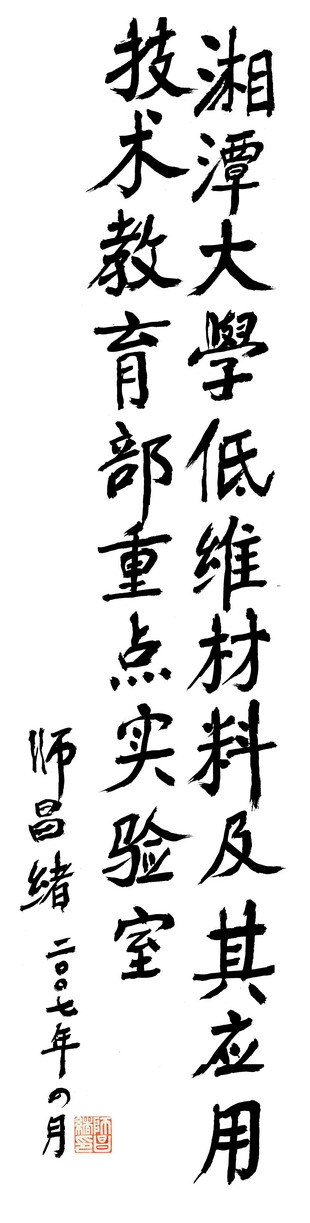 湘潭大學低维材料及其应用
技术教育部重点实验室
师昌绪
二〇〇七年四月
师昌绪印